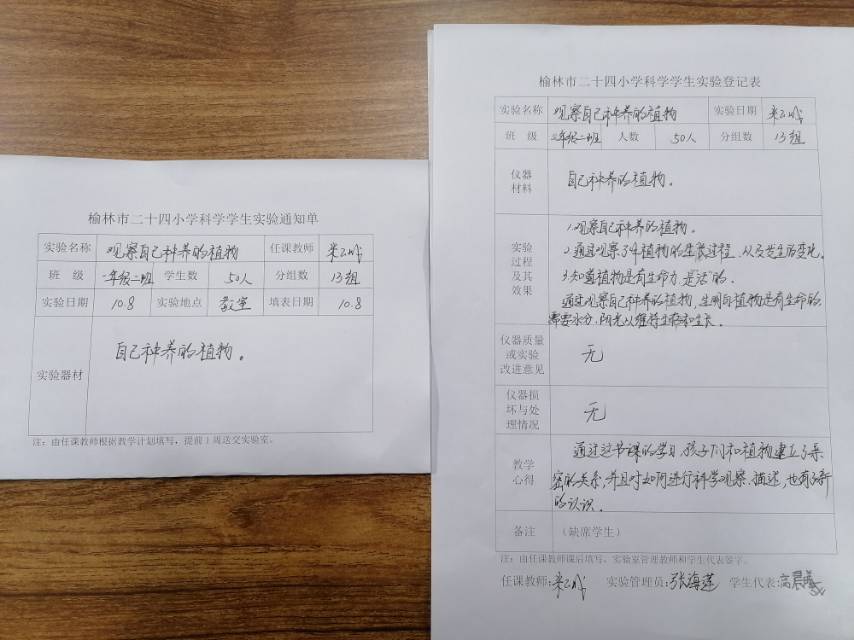 榆林市二十四小学科学学生实验通知单
实验名称 观察自己种养的植物 任课教师
班 级 一年级二班 学生数 50人 分组数 13组
实验日期 10.8 实验地点 教室 填表日期 10.8
实验器材 自己种养的植物。
注：由任课教师根据教学计划填写，提前1周送交实验室。
榆林市二十四小学科学学生实验登记表
实验名称 观察自己种养的植物 实验日期
班 级 年级二班 人数 50人 分组数 13组
仪器
材料
自己种养的植物。
实验
过程
及其
效果
1.观察自己种养的植物。
2.通过观察了解植物的生长过程，以及发生的变化。
3.知道植物是有生命力，是活的。
通过观察自己种养的植物，生明白植物是有生命的
需要水分，阳光以维持生存和生长。
仪器质量
或实验
改进意见
无
仪器损
坏与处
理情况
无
教学
心得
通过这节课的学习，孩子们和植物建立了亲
密的关系，并且对如何进行科学观察、描述，也有了新
的认识。
备注 （缺席学生）
注：由任课教师课后填写，实验室管理教师和学生代表签字。
任课教师： 实验管理员：张海莲 学生代表：高晨